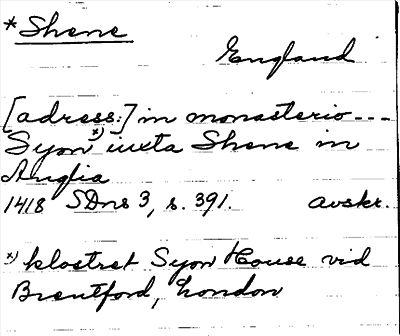 *Shene
England
[adress:] in monasterio---
Syon *) iuxta Shene in
Anglia
1418 SDns 3, s. 391. avskr.
*) klostret Syon House vid
Brentford, London